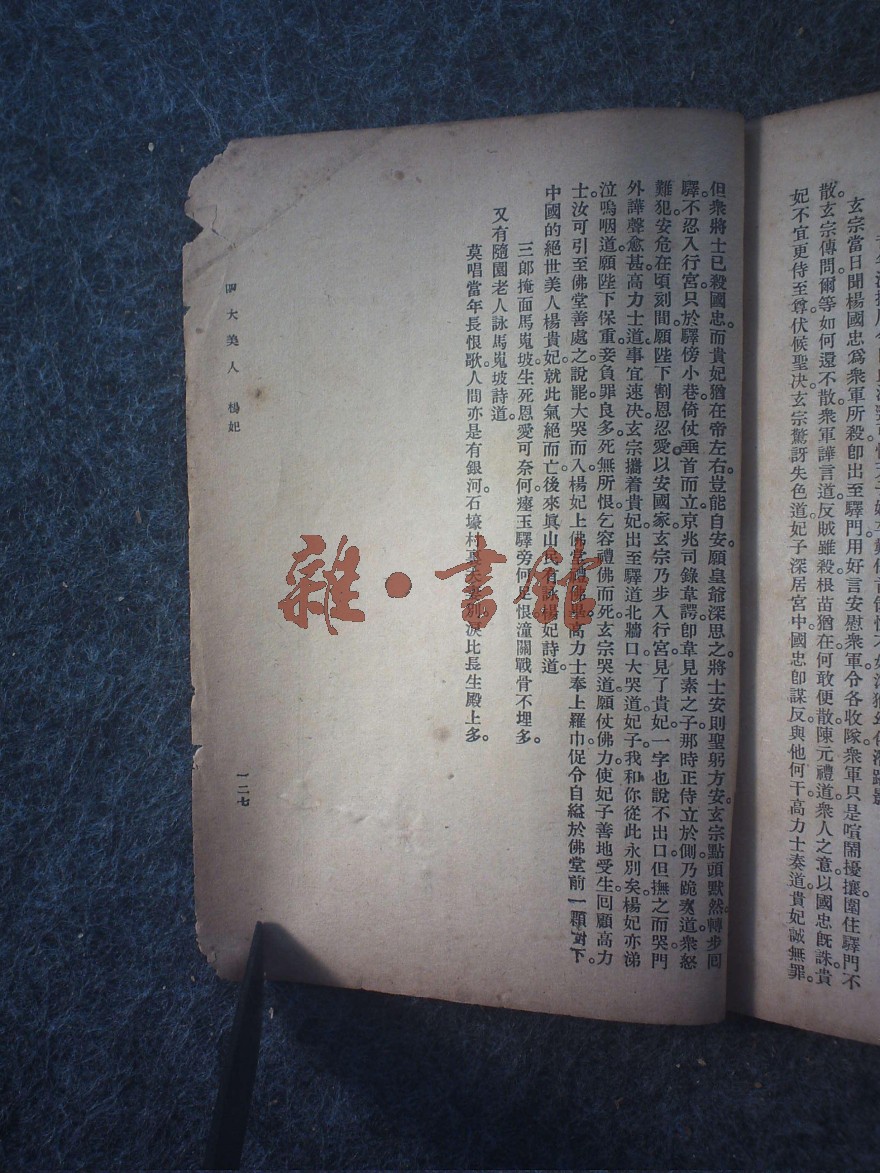 玄宗當日聞楊國忠爲衆軍所殺卽出至驛門用好言安慰衆軍令各收隊衆軍只是喧鬧擾攘圍住驛門不
散。玄宗傳問爾等如何還不散衆軍譁言道反賊雖殺根苗猶在何敢便散。陳元禮道衆人之意以國忠旣誅貴
妃不宜更侍至尊伏候聖決。玄宗驚訝失色道妃子深居宮中國忠卽謀反與他何干。高力士奏道貴妃誠無罪。
但衆將士已殺國忠。而貴妃猶在帝左右。豈能自安。願皇爺深思之。將士安則聖躬方安。玄宗點頭默然。轉步回
驛。不忍入行宮。只於驛傍小巷倚仗垂首而立。京兆司錄韋諤。卽韋見素之子。那時正侍立於側。乃跪奏道。衆怒
難犯。安危在頃刻間。願陛下割恩忍愛。以安國家。玄宗乃步入行宮。見了貴妃。一字也說不出口。但撫之而哭。門
外譁聲愈甚。高力士道。事宜速決。玄宗攜着貴妃。出至驛道北牆口。大哭道。妃子。我和你從此永別矣。楊妃亦涕
泣嗚咽道。願陛下保重。妾負罪良多。死無所恨。乞容禮佛而死。玄宗哭道。願仗佛力。使妃子善地受生。回顧高力
士。汝可引至佛堂善處之。說罷大哭而入。楊妃上佛堂禮佛畢。高力士奉上羅巾。促令自縊於佛堂前一顆樹下。
中國的絕世美人楊貴妃。就此氣絕而亡。後來眞山民有詠楊妃詩道。
三郎掩面馬嵬坡。生死恩愛可奈何。瘞玉驛旁何足恨。潼關戰骨不埋多。
又有隨園老人詠馬嵬坡詩道。
莫唱當年長恨歌。人間亦是有銀河。石壕村裏夫妻別。淚比長生殿上多。
四大美人 楊妃
一二七
雜·書館